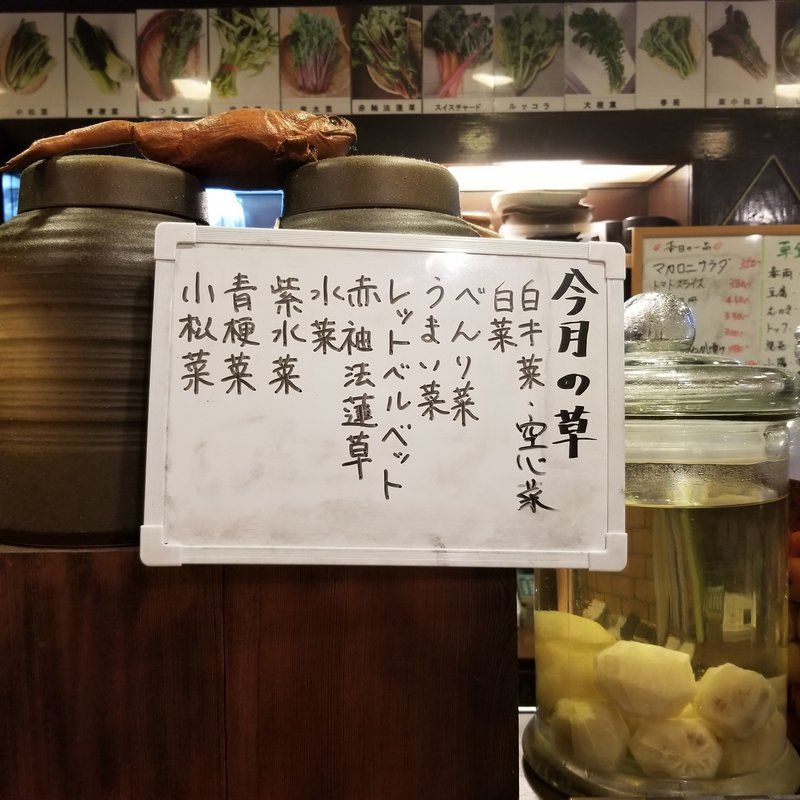 小松菜
青梗菜
つる菜
赤軸法蓮草
スイスチャード
ルッコラ
大根葉
春菊
紫小松菜
今月の草
白才菜・空心菜
白菜
べんり菜
うまい菜
レットベルベット
赤袖法蓮草
水菜
紫水菜
青梗菜
小松菜
本日の一品
マカロニサラダ 350
トマトスライス